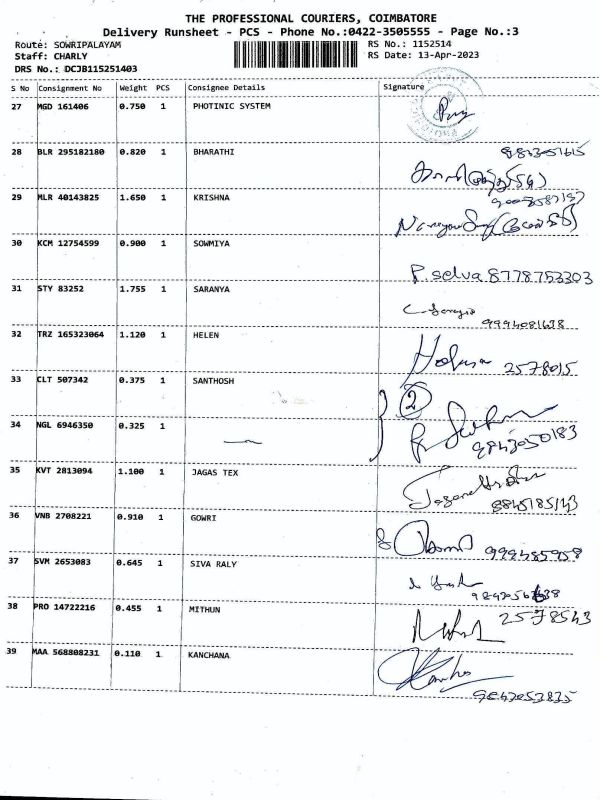 THE PROFESSIONAL COURIERS, COIMBATORE
Delivery Runsheet - PCS - Phone No.:0422-3505555 - Page No.:3
Route: SOWRIPALAYAM
RS No.: 1152514
Staff: CHARLY
RS Date: 13-Apr-2023
DRS No.: DCJB115251403
S No Consignment No Weight PCS Consignee Details Signature
27 MGD 161406 0.750 1 PHOTINIC SYSTEM
28 BLR 295182180 0.820 1 BHARATHI
29 MLR 40143825 1.650 1 KRISHNA
30 KCM 12754599 0.900 1 SOWMIYA
P. selva 8778753303
31 STY 83252 1.755 1 SARANYA
9994081678
32 TRZ 165323064 1.120 1 HELEN
2578015
33 CLT 507342 0.375 1 SANTHOSH
2
34 NGL 6946350 0.325 1
9843050183
35 KVT 2813094 1.100 1 JAGAS TEX
8845185143
36 VNB 2708221 0.910 1 GOWRI
37 SVM 2653083 0.645 1 SIVA RALY
38 PRO 14722216 0.455 1 MITHUN
2578543
39 MAA 568808231 0.110 1 KANCHANA
9842053835